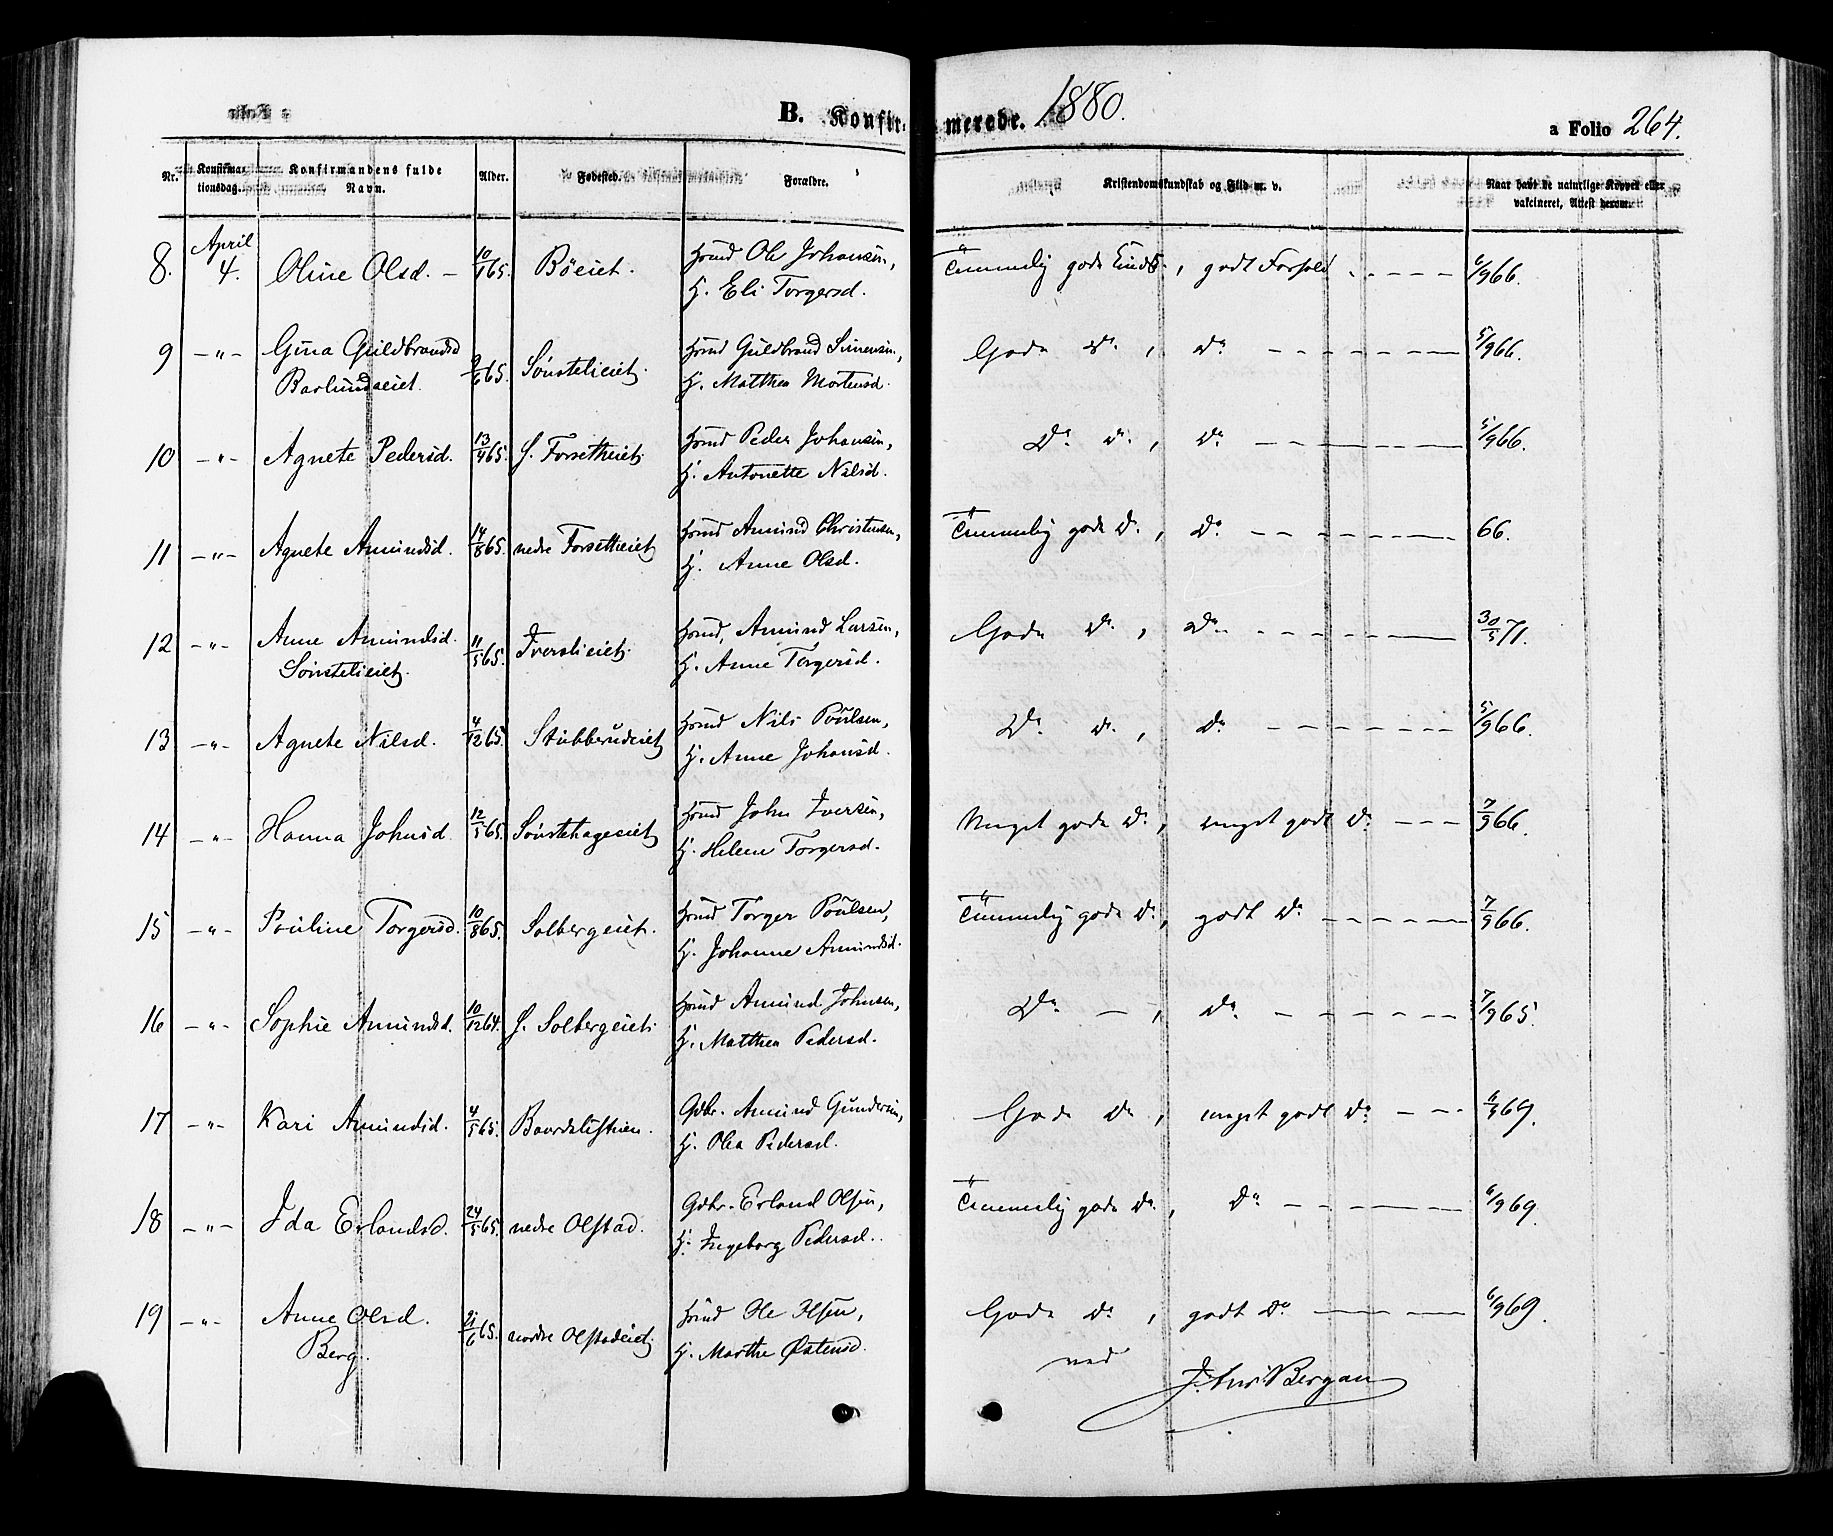 B. Konfirmerede. 1880.
a Folio 264.
Nr. Konfirmationsdag. Konfirmandens fulde Navn. Alder. Fødested. Forældre. Kristendomskundskab og Flid m. v. Naar havt de naturlige Kopper eller vakcineret, Attest herom.
8. April 4. Oline Olsd. – 10/1 65. Böeiet. Hmd Ole Johansen, Temmelig gode Kundsk., godt Forhold – – – – 6/9 66.
H. Eli Torgersd.
9 –"– Gina Guldbrandsd 9/6 65. Sönstelieiet. Hmd Guldbrand Simensen, Gode Do, Do – – – – 5/9 66.
Barlundseiet. H. Matthea Mortensd.
10 –"– Agnete Pedersd. 13/4 65. S. Forsetheiet. Hmd Peder Johansen, Do Do, Do – – – – 5/9 66.
H. Antonette Nilsd.
11 –"– Agnete Amundsd. 14/8 65. nedre Forsetheiet Hmd Amund Christensen, Temmelig gode Do, Do – – – – 66.
H. Anne Olsd.
12 –"– Anne Amundsd. 11/5 65. Iverslieiet. Hmd, Amund Larsen, Gode Do, Do – – – – 30/5 71.
Sönstelieiet. H. Anne Torgersd.
13 –"– Agnete Nilsd. 4/12 65. Stubberudeiet Hmd Nils Poulsen, Do Do, Do – – – – 5/9 66.
H. Anne Johansd.
14 –"– Hanna Johnsd. 12/5 65. Sönstehageeiet Hmd John Iversen, Meget gode Do, meget godt Do – – – 7/9 66.
H. Helene Torgersd.
15 –"– Pouline Torgersd. 10/8 65. Solbergeiet. Hmd Torger Poulsen, Temmelig gode Do, godt Do – – – – 7/9 66.
H. Johanne Amundsd.
16 –"– Sophie Amundsd. 10/12 64. S. Solbergeiet. Hmd Amund Johnsen, Do –, Do – – – – 7/9 65.
H. Matthea Pedersd.
17 –"– Kari Amundsd. 4/5 65. Baardslistuen. Gdbr. Amund Gundersen, Gode Do, meget godt Do – – – 6/9 69.
H. Olea Pedersd.
18 –"– Ida Erlandsd. 24/5 65. nedre Olstad. Gdbr. Erland Olsen, Temmelig gode Do, Do – – – – 6/9 69.
H. Ingeborg Pedersd.
19 –"– Anne Olsd. 21/6 65. nordre Olstadeiet. Hmd Ole Olsen, Gode Do, godt Do – – – 6/9 69.
Berg. H. Marthe Östensd.
ved
Bergan